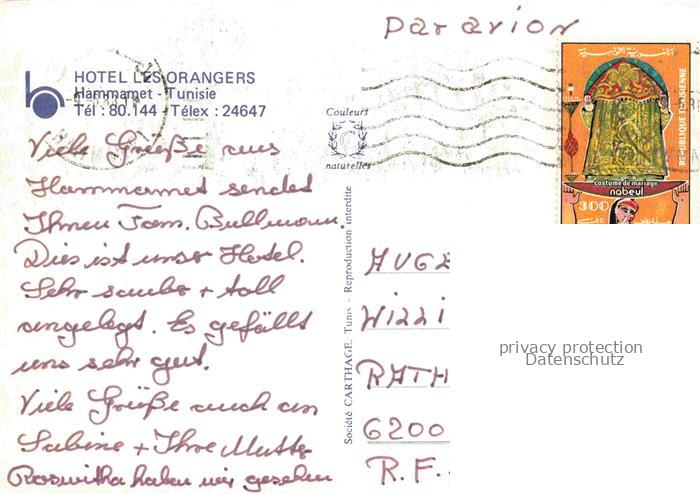 par avion
HOTEL LES ORANGERS
Hammamet - Tunisie
Tél : 80.144 - Télex : 24647
Couleurs
naturelles
Viele Grüße aus
Hammamet sendet
Ihnen Fam. Bullmann.
Dies ist unser Hotel.
Sehr sauber + toll
angelegt. Es gefällt
uns sehr gut.
Viele Grüße auch an
Sabine + Ihre Mutter
Roswitha haben wir gesehen
Société CARTHAGE. Tunis - Reproduction interdite
الجمهورية التونسية
REPUBLIQUE TUNISIENNE
costume de mariage
nabeul
300
6200
R.F.
privacy protection
Datenschutz